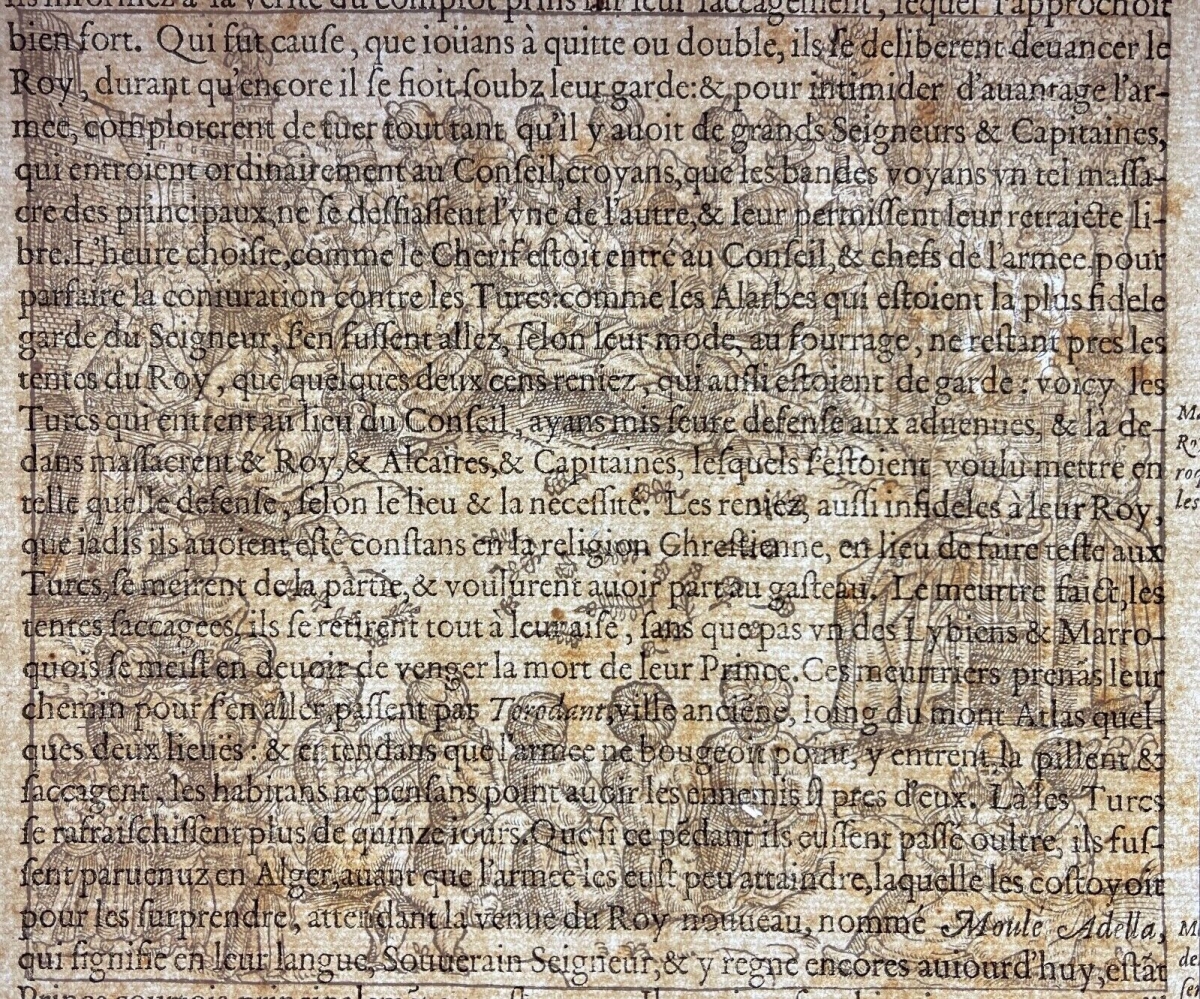 ils informez à la verité du complot prins sur leur saccagement, lequel s'approchoit
bien fort. Qui fut cauſe, que ioüans à quitte ou double, ils ſe deliberent deuancer le
Roy, durant qu'encore il ſe fioit ſoubz leur garde: & pour intimider d'auantage l'ar-
mee, comploterent de tuer tout tant qu'il y auoit de grands Seigneurs & Capitaines,
qui entroient ordinairement au Conſeil, croyans, que les bandes voyans vn tel maſſa-
cre des principaux, ne ſe deffiaſſent l'vne de l'autre, & leur permiſſent leur retraicte li-
bre. L'heure choiſie, comme le Cherif eſtoit entré au Conſeil, & chefs de l'armee pour
parfaire la coniuration contre les Turcs: comme les Alarbes qui eſtoient la plus fidele
garde du Seigneur, ſ'en fuſſent allez, ſelon leur mode, au fourrage, ne reſtant pres les
tentes du Roy, que quelques deux cens reniez, qui auſſi eſtoient de garde: voicy les
Turcs qui entrent au lieu du Conſeil, ayans mis ſeure defenſe aux aduenues, & là de-
dans maſſacrent & Roy, & Alcaires, & Capitaines, leſquels ſ'eſtoient voulu mettre en
telle quelle defenſe, ſelon le lieu & la neceſſité. Les reniez, auſſi infideles à leur Roy,
que iadis ils auoient eſté conſtans en la religion Chreſtienne, en lieu de faire teſte aux
Turcs, ſe meirent de la partie, & voulurent auoir part au gaſteau. Le meurtre faict, les
tentes ſaccagees, ils ſe retirent tout à leur aiſe, ſans que pas vn des Lybiens & Marro-
quois ſe meiſt en deuoir de venger la mort de leur Prince. Ces meurtriers prenãs leur
chemin pour ſ'en aller, paſſent par Torodant, ville anciéne, loing du mont Atlas quel-
ques deux lieuës: & entendans que l'armee ne bougeoit point, y entrent, la pillent &
ſaccagent, les habitans ne penſans point auoir les ennemis ſi pres d'eux. Là les Turcs
ſe rafraiſchiſſent plus de quinze iours. Que ſi ce pédant ils euſſent paſſé oultre, ils fuſ-
ſent paruenuz en Alger, auant que l'armee les euſt peu attaindre, laquelle les coſtoyoit
pour les ſurprendre, attendant la venue du Roy nouueau, nommé Moulé Adella,
qui ſignifie en leur langue, Souuerain Seigneur, & y regne encores auiourd'huy, eſtãt
Ro
les
de